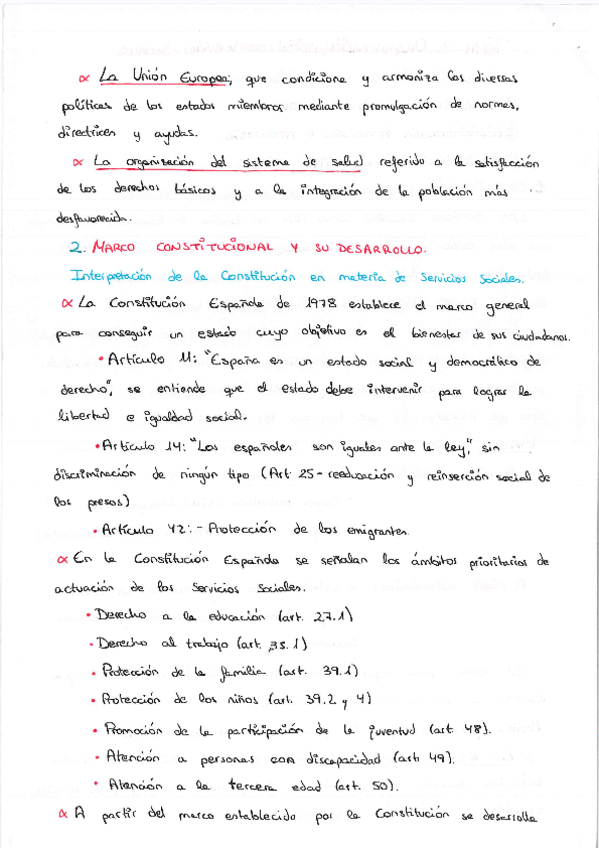 ∝ La Unión Europea; que condiciona y armoniza las diversas
políticas de los estados miembros mediante promulgación de normas,
directrices y ayudas.
∝ La organización del sistema de salud referido a la satisfacción
de los derechos básicos y a la integración de la población más
desfavorecida.
2. MARCO CONSTITUCIONAL Y SU DESARROLLO.
Interpretación de la Constitución en materia de Servicios Sociales.
∝ La Constitución Española de 1978 establece el marco general
para conseguir un estado cuyo objetivo es el bienestar de sus ciudadanos.
• Artículo 11: "España es un estado social y democrático de
derecho", se entiende que el estado debe intervenir para lograr la
libertad e igualdad social.
• Artículo 14: "Los españoles son iguales ante la ley," sin
discriminación de ningún tipo (Art 25 - reeducación y reinserción social de
los presos)
• Artículo 42: - Protección de los emigrantes.
∝ En la Constitución Española se señalan los ámbitos prioritarios de
actuación de los Servicios Sociales.
• Derecho a la educación (art. 27.1)
• Derecho al trabajo (art. 35.1)
• Protección de la familia (art. 39.1)
• Protección de los niños (art. 39.2 y 4)
• Promoción de la participación de la juventud (art 48).
• Atención a personas con discapacidad (art 49).
• Atención a la tercera edad (art. 50).
∝ A partir del marco establecido por la Constitución se desarrolla